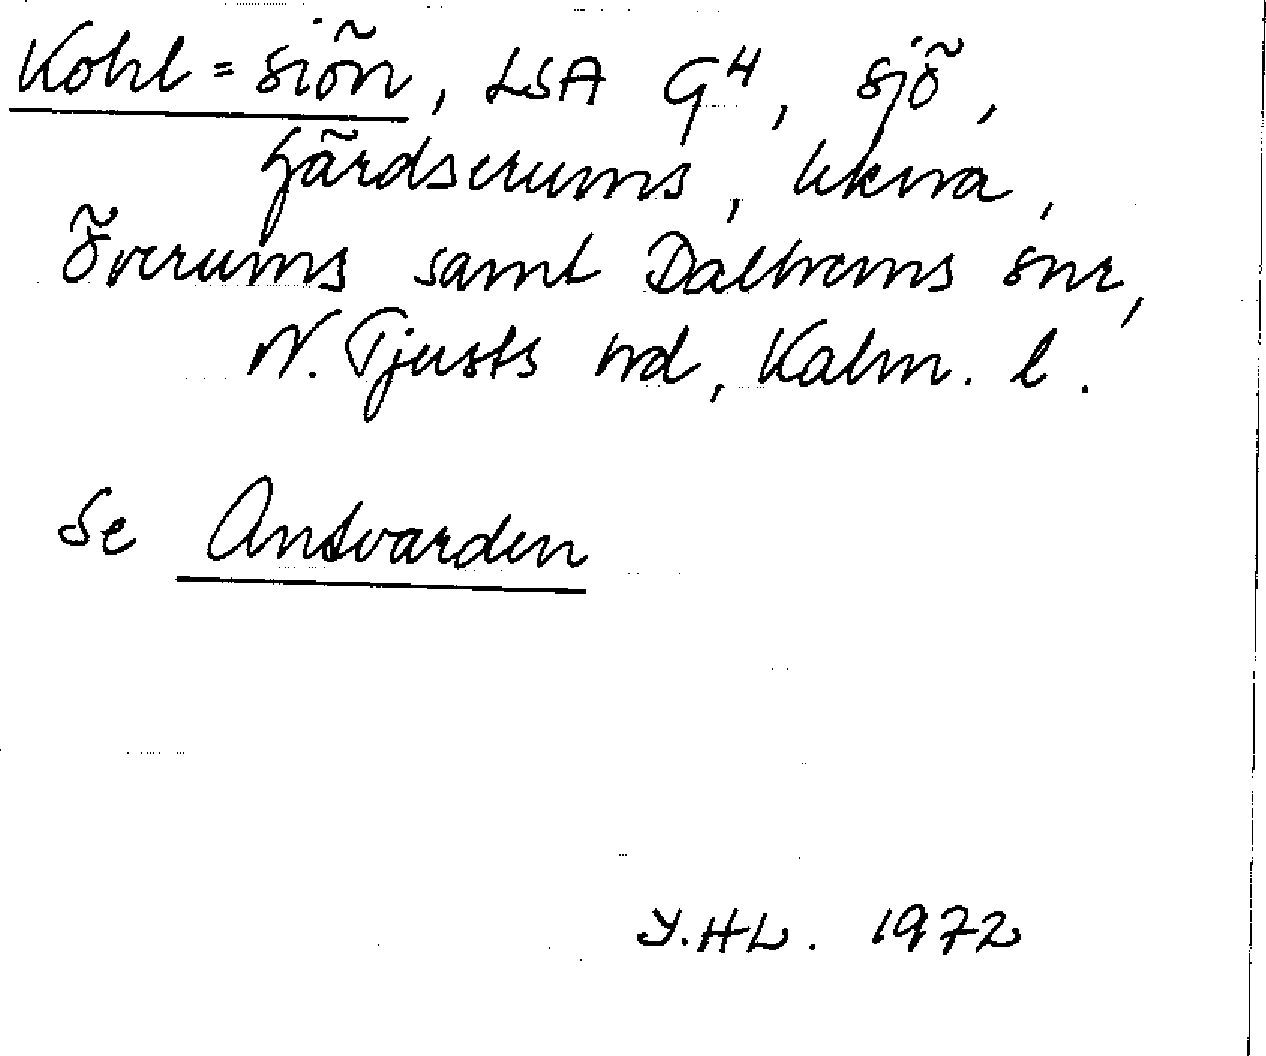 Kohl=siön, LSA G4, sjö,
Gärdserums, Ukna,
Överums samt Dalhems snr,
N. Tjusts hd, Kalm. l.
Se Antvarden
Y.HL. 1972